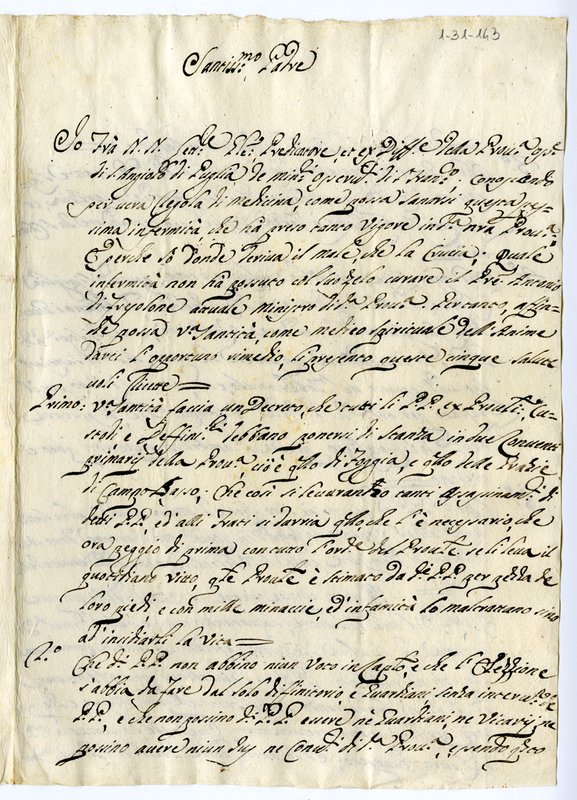 1-31-143
Santiss.mo Padre
Io Frà N. N. Lett.re Pred.re Predicatore, et ex Diff.e della Prou.a
di S. Angiolo di Puglia de min.i osseru.ti di S. Fran.co, conoscendo
per uera regola di medicina, come possa sanarsi questa pes-
sima infermità, che hà preso tanto vigore in d.a nra Prou.a
E perche sò donde deriua il male, che la crucia; quale
infermità non hà possuto col suo zelo curare il Pre Antonio
di attuale ministro di d.a Prou.a Pertanto, affin-
che possa V.a Santità, come medico spirituale dell'Anime
darci l'opportuno rimedio, li presento queste cinque salute
uoli riceute
Primo: V.a Santità faccia un Decreto, che tutti li P.P. ex Prouli: Cu-
stodi e Deffin.ri debbano ponersi di stanza in due Conuenti
primarij della Prou.a cioè qllo di Foggia, e qllo delle Grazie
di Campo Basso; Che così si leuarando tanti assassinam.ti di
detti P.P., ed' alli Frati si darria qllo, che l'è necessario, che
ora peggio di prima con tutto l'ord.e del Proule se li leua il
quotidiano vitto, qle Proule è stimato da d.i P.P. per petta de
loro piedi, e con mille minaccie, ed' infamità lo maltrattano sino
ad' insidiarli la vita
2.o Che d.i P.P. non abbino niun voto in Cap.lo, e che l'Elezzione
s'abbia da fare dal solo diffinitorio e Guardiani senza interu.to de
P.P., e che non possino d.i P.P. essere ne Guardiani, ne Vicarij, ne
possino auere niun ne Conu.ti di d.a Prou.a, essendo qsto